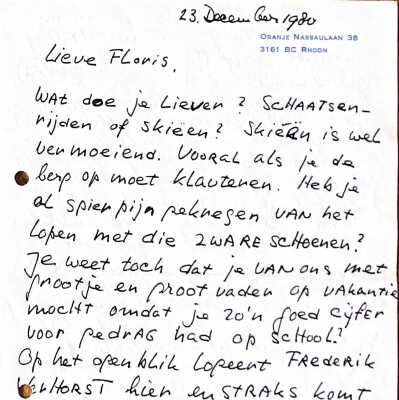 23. December 1980
ORANJE NASSAULAAN 38
3161 BC RHOON
Lieve Floris,
WAT doe je Liever? SCHAATSEN-
rijden of skieën? Skieën is wel
vermoeiend. Vooral als je de
berg op moet klauteren. Heb je
al spierpijn gekregen VAN het
lopen met die ZWARE SCHOENEN?
Je weet toch dat je VAN ons met
grootje en grootvader op vakantie
mocht omdat je zo'n goed cijfer
voor gedrag had op school?
Op het ogenblik logeert FREDERIK
VerHORST hier en STRAKS komt